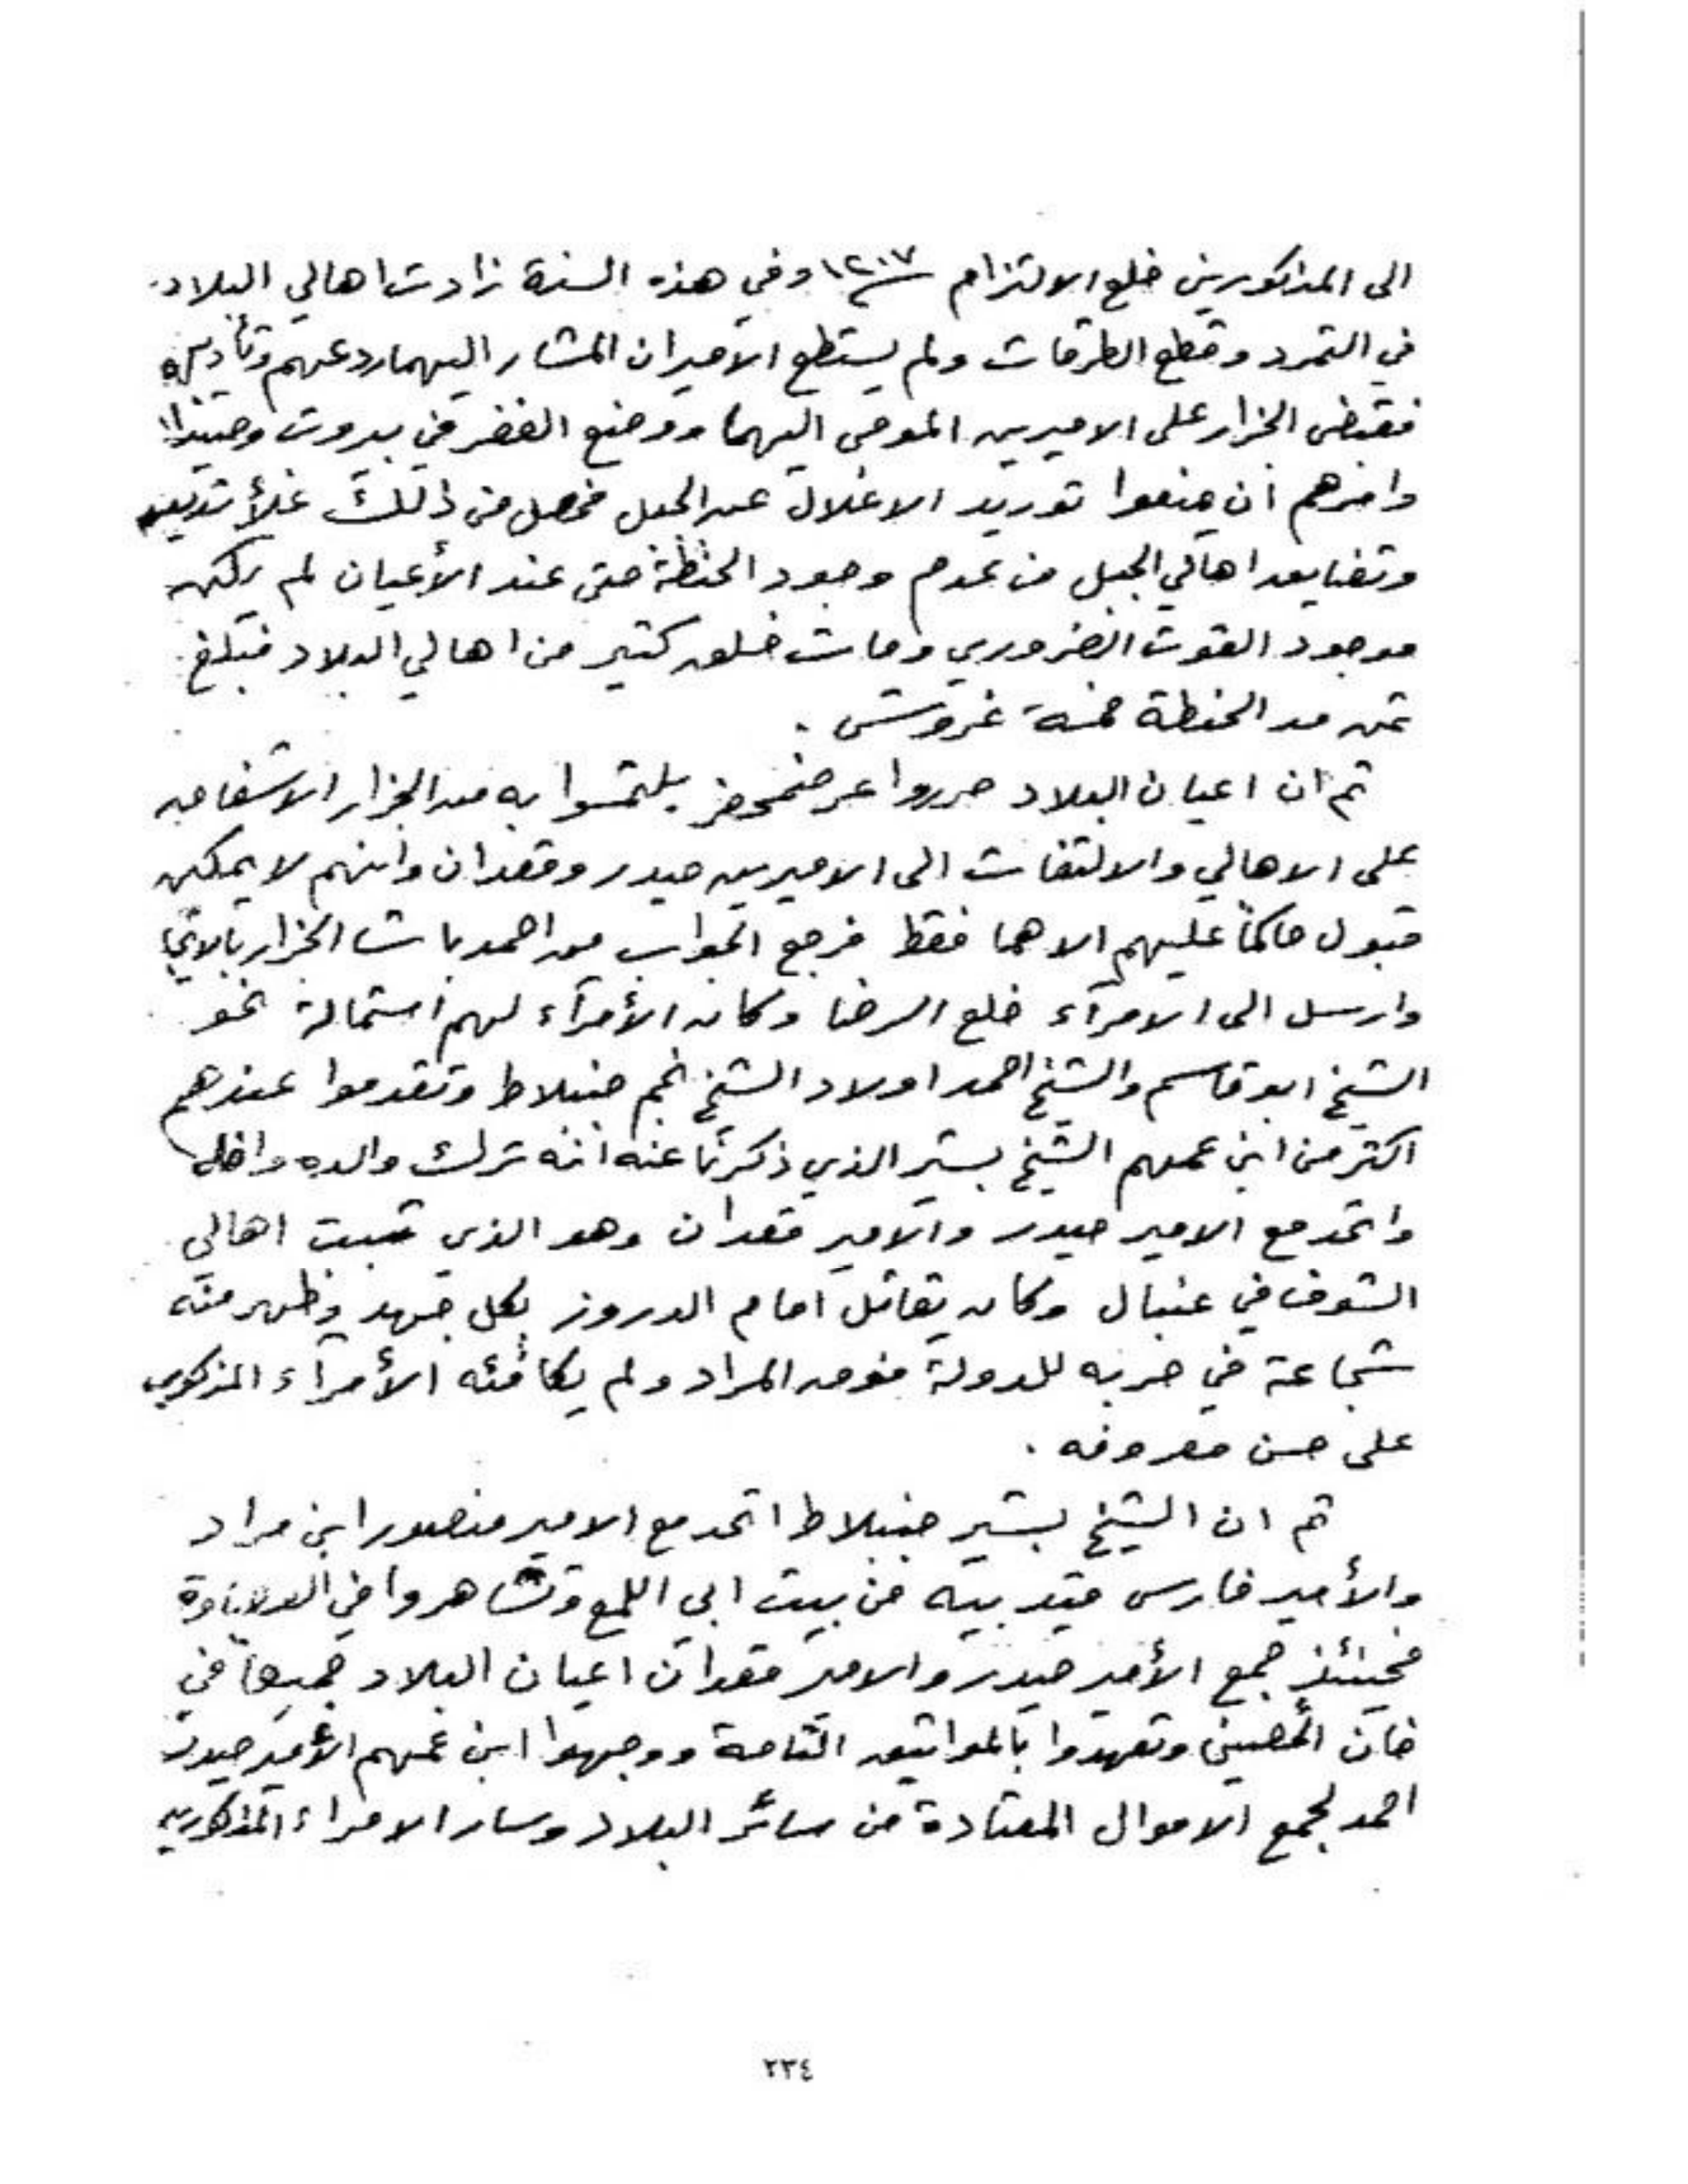 الى المذكورين خلع الالتزام ١٢٠٧ وفي هذه السنة زادت اهالي البلاد
في التمرد وقطع الطرقات ولم يستطع الاميران المشار اليهما ردعهم وتأديبهم
فقبض الجزار على الاميرين المومى اليهما ووضع الغضر في بيروت وصيدا
وامرهم ان يمنعوا توريد الاغلال عن الجبل فحصل من ذلك غلأ شديد
وتضايقوا اهالي الجبل من عدم وجود الحنطة حتى عند الأعيان لم يكن
موجود القوت الضروري ومات خلق كثير من اهالي البلاد فبلغ
ثمن مد الحنطة خمسة غروش .
ثم ان اعيان البلاد حرروا عرضمحضر يلتمسوا به من الجزار الاشفاق
على الاهالي والالتفات الى الاميرين حيدر وقعدان وانهم لا يمكن
قبول حاكماً عليهم الا هما فقط فرجع الجواب من احمد باشا الجزار بالايجاب
وارسل الى الامرآء خلع الرضا وكان الأمرآء لهم استمالة نحو
الشيخ ابو قاسم والشيخ احمد اولاد الشيخ نجم جنبلاط وتقدموا عندهم
اكثر من ابن عمهم الشيخ بشير الذي ذكرنا عنه انه ترك والده واهله
واتحد مع الامير حيدر والامير قعدان وهو الذي ثبت اهالي
الشوف في عنبال وكان يقاتل امام الدروز بكل جهد وظهر منه
شجاعة في حربه للدولة فوق المراد ولم يكافئه الأمرآء المذكورين
على حسن معروفه .
ثم ان الشيخ بشير جنبلاط اتحد مع الامير منصور ابن مراد
والأمير فارس قيد بيه من بيت ابي اللمع وتشاهروا في العداوة
فحينئذٍ جمع الأمير حيدر والامير قعدان اعيان البلاد جميعاً في
خان الحصين وتعهدوا بالمواثيق التامة ووجهوا ابن عمهم الأمير حيدر
احمد لجمع الاموال المعتادة من سائر البلاد وسار الامراء المذكورين
٢٣٤